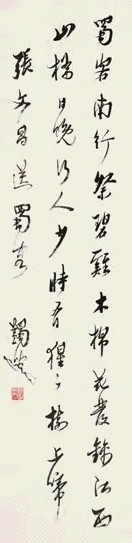 蜀客南行祭碧雞木棉花發錦江西
山橋日晚行人少時看猩々樹上啼
張文昌送蜀客